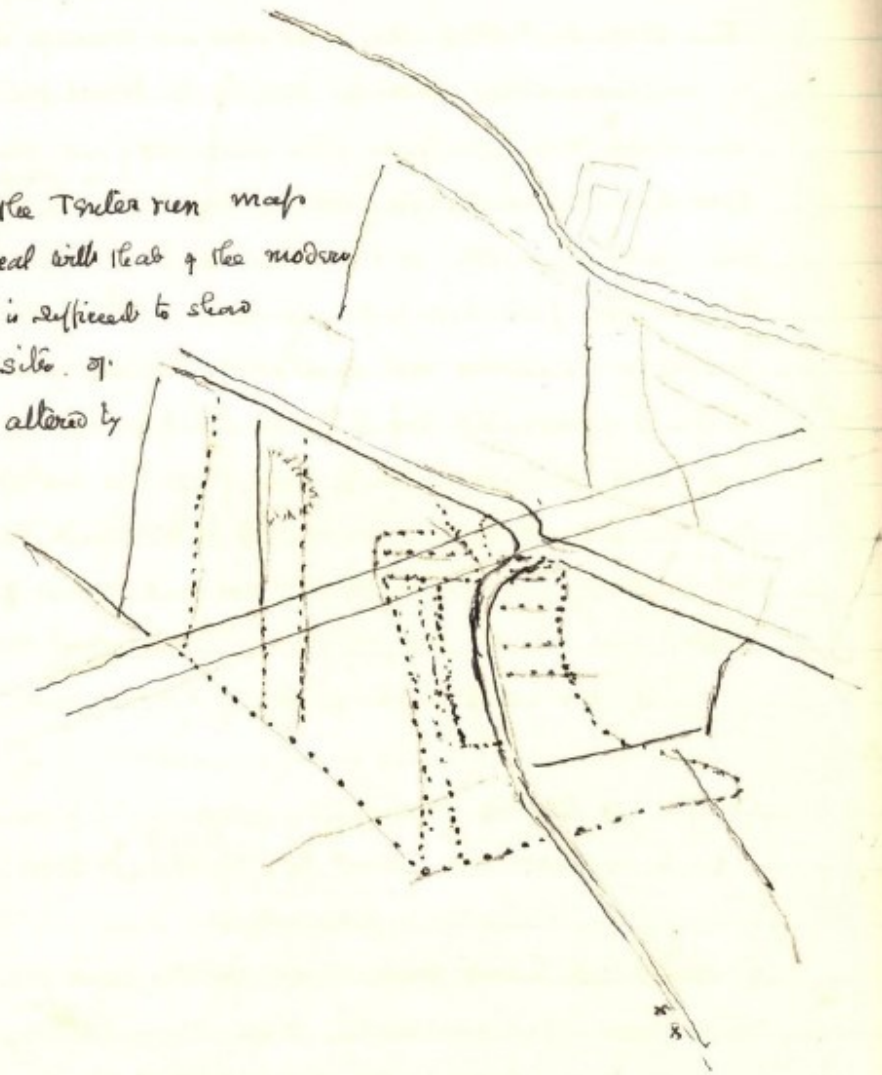 the Tender run map
eal with that of the modern
is sufficient to show
site. of.
altered by